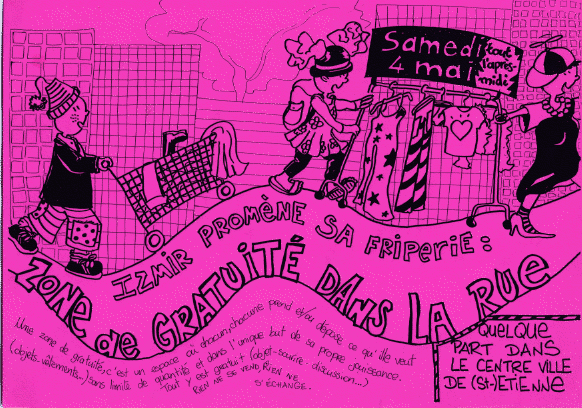 Samedi
4 mai
tout
l'après-
midi
IZMIR PROMÈNE SA FRIPERIE :
ZONE de GRATUITÉ DANS LA RUE
Une zone de gratuité, c'est un espace où chacun.chacune prend et/ou dépose ce qu'ille veut
(objets, vêtements...) sans limite de quantité et dans l'unique but de sa propre jouissance.
Tout y est gratuit (objet-sourire-discussion...)
RIEN NE SE VEND, RIEN NE
S'ÉCHANGE.
QUELQUE
PART DANS
LE CENTRE VILLE
DE (St-)ETIENNE